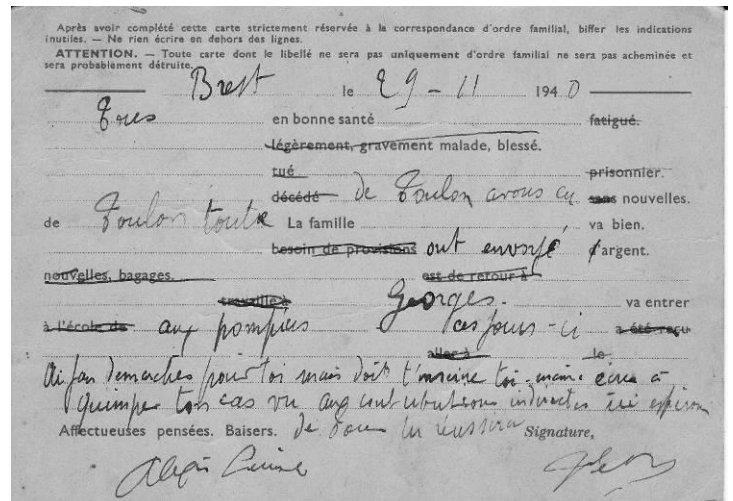 Après avoir complété cette carte strictement réservée à la correspondance d'ordre familial, biffer les indications
inutiles. — Ne rien écrire en dehors des lignes.
ATTENTION. — Toute carte dont le libellé ne sera pas uniquement d'ordre familial ne sera pas acheminée et
sera probablement détruite.
Brest le 29 - 11 1940
Tres en bonne santé fatigué.
légèrement, gravement malade, blessé.
tué prisonnier.
décédé de Toulon avons eu sans nouvelles.
de Toulon toute La famille va bien.
besoin de provisions ont envoyé d'argent.
nouvelles, bagages. est de retour à
travaille à Georges. va entrer
à l'école de aux pompiers ces jours-ci a été reçu
aller à le
Ai fait demarches pour toi mais doit t'inscrire toi-même écrire à
Quimper ton cas vu aux contributions indirectes ici
Affectueuses pensées. Baisers. de tous Signature,